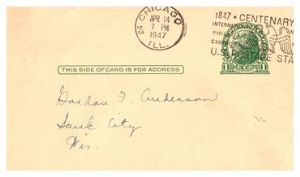 24 CHICAGO
APR 14
7 PM
1947
ILL.
1847 • CENTENARY
U.S. POSTAGE STA
THIS SIDE OF CARD IS FOR ADDRESS
Gordon F. Anderson
Sauk City
Wis.